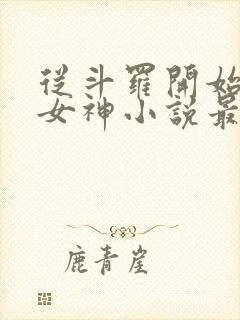 從斗羅開始
女神小說最
鹿青崖